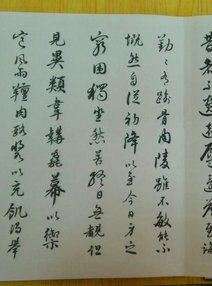 勤〻有踰骨肉陵雖不敏能不
慨然自從初降以至今日身之
窮困獨坐愁苦終日無覩但
見異類韋韝毳幕以禦
風雨羶肉酪漿以充飢渴舉